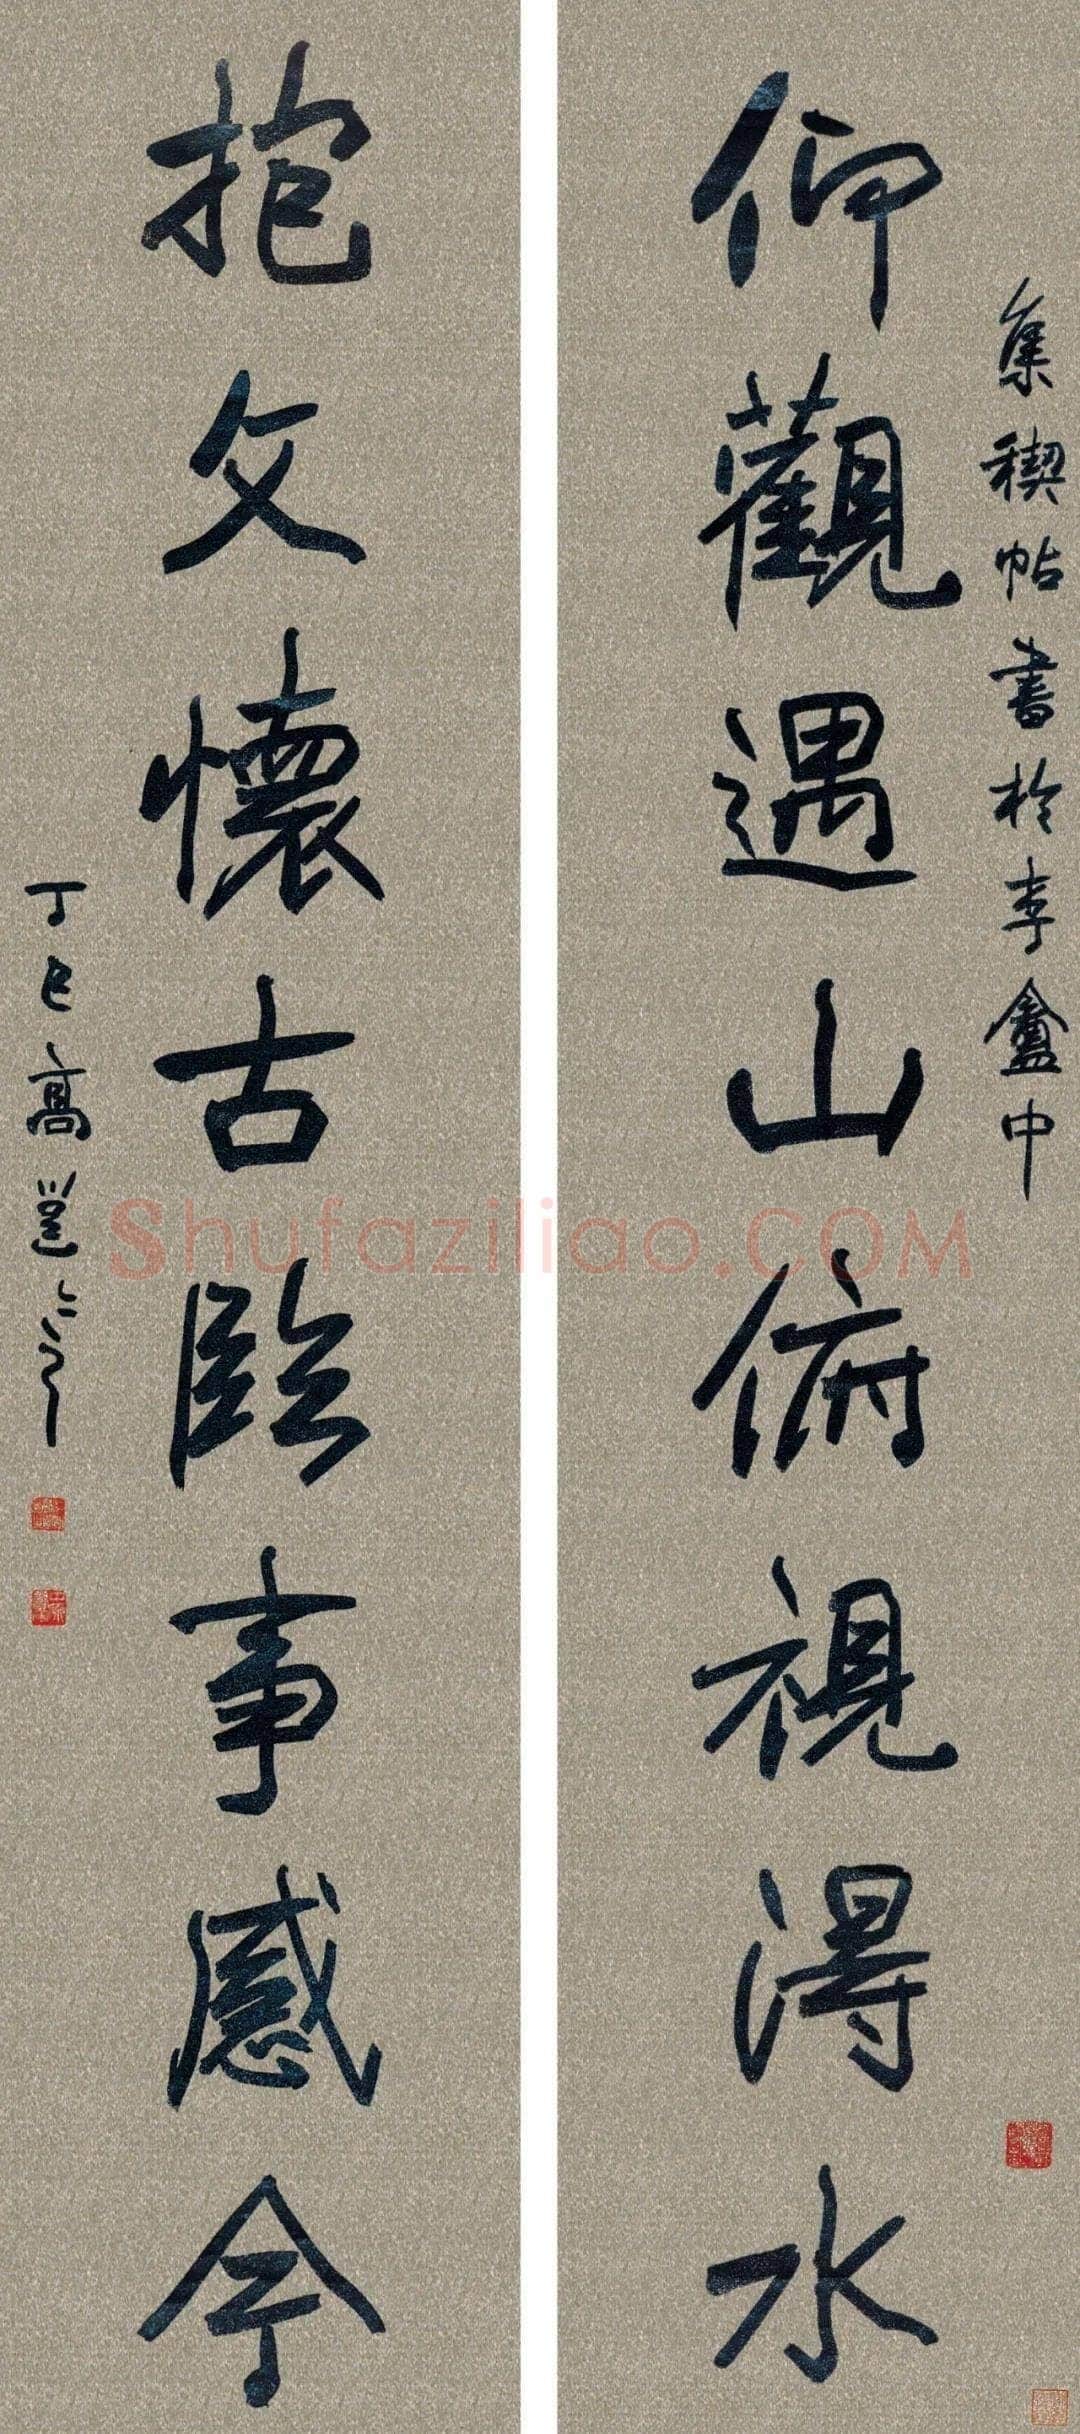 集稧帖書於李盦中
仰觀遇山俯視得水
抱文懷古臨事感今
丁巳高邕之
Shufaziliao.COM